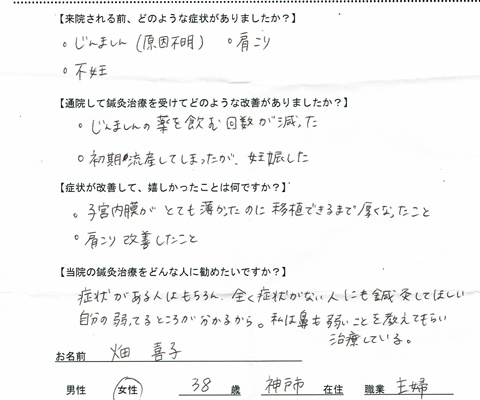 【来院される前、どのような症状がありましたか？】
。じんましん（原因不明） 。肩こり
。不妊
【通院して鍼灸治療を受けてどのような改善がありましたか？】
。じんましんの薬を飲む回数が減った
。初期流産してしまったが、妊娠した
【症状が改善して、嬉しかったことは何ですか？】
。子宮内膜がとても薄かったのに移植できるまで厚くなったこと
。肩こり改善したこと
【当院の鍼灸治療をどんな人に勧めたいですか？】
症状がある人はもちろん、全く症状がない人にも鍼灸してほしい
自分の弱ってるところが分かるから。私は鼻も弱いことを教えてもらい
治療している。
お名前 畑 喜子
男性 女性 38 歳 神戸市 在住 職業 主婦